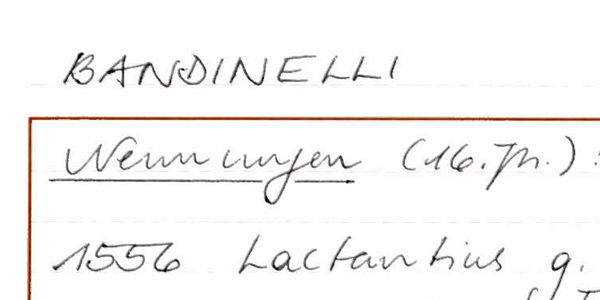 BANDINELLI
Nennungen (16. Jh.):
1556 Lactantius q.